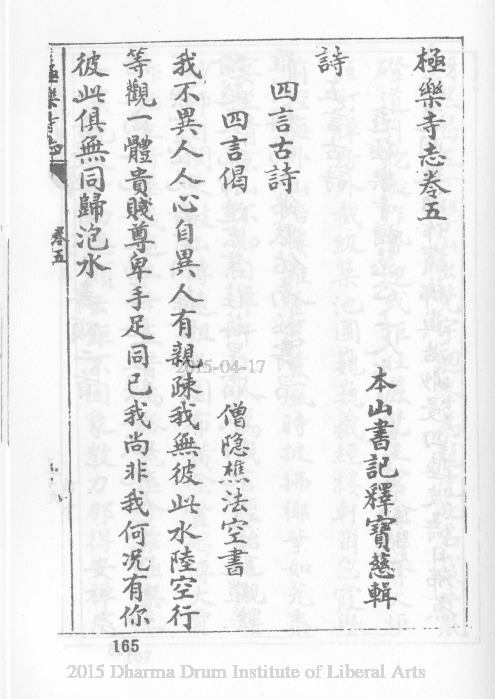 極樂寺志卷五
本山書記釋寶慈輯
詩
四言古詩
四言偈
僧隐樵法空書
我不異人人心自異人有親踈我無彼此水陸空行
等觀一體貴賤尊卑手足同已我尚非我何況有你
彼此俱無同歸泡水
極樂寺志
卷五
2015-04-17
165
2015 Dharma Drum Institute of Liberal Arts